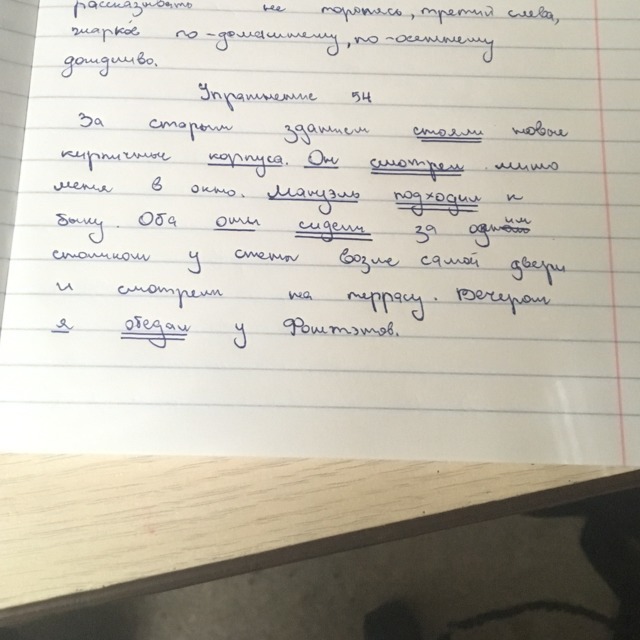 рассказывать не торопясь, третий слева,
жарко по-домашнему, по-осеннему
дождливо.
Упражнение 54
За старым зданием стояли новые
кирпичные корпуса. Он смотрел мимо
меня в окно. Мануэль подходил к
быку. Оба они сидели за одним
столиком у стены возле самой двери
и смотрели на террасу. Вечером
я обедал у Фоштэтов.